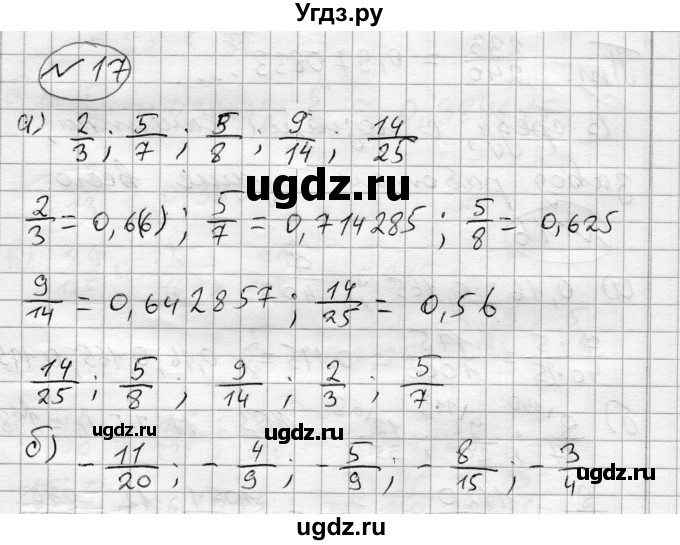 Угдз.ру
№ 17
а) 2/3 ; 5/7 ; 5/8 ; 9/14 ; 14/25
ugdz.ru
2/3 = 0,6(6) ; 5/7 = 0,714285 ; 5/8 = 0,625
9/14 = 0,642857 ; 14/25 = 0,56
14/25 ; 5/8 ; 9/14 ; 2/3 ; 5/7
ugdz.ru ugdz.ru ugdz.ru
б) - 11/20 ; - 4/9 ; - 5/9 ; - 8/15 ; - 3/4
ugdz.ru